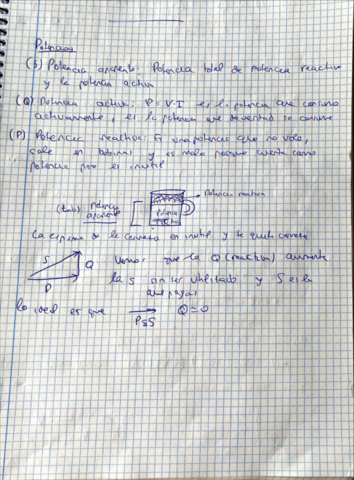 Potencias
(S) Potencia aparente: Potencia total de potencia reactiva
y la potencia activa
(Q) Potencia activa: P = V·I es la potencia que consumo
activamente, es la potencia que de verdad se consume
(P) Potencia reactiva: Es una potencia que no vale,
sale en bobinas y es malo porque cuenta como
potencia pero es inutil
(Total) Potencia aparente
Potencia reactiva
Potencia activa
La espuma de la cerveza es inutil y te quita cerveza
S
Q
P
Vemos que la Q (reactiva) aumenta
la S sin ser utilizado y S es lo
que pagas
lo ideal es que P≡S Q=0